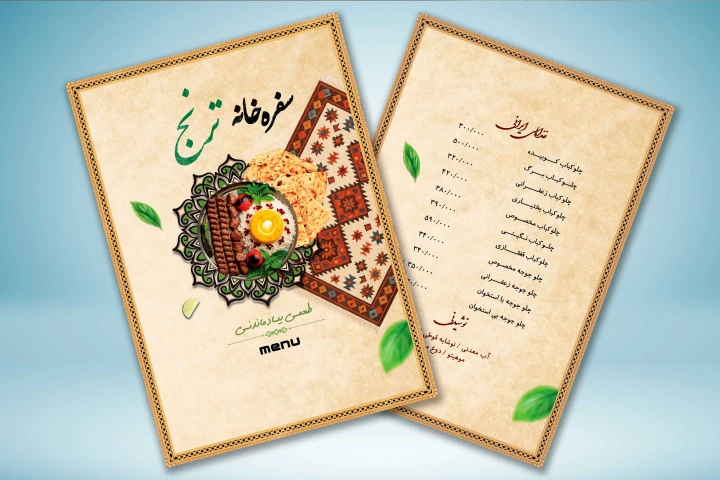 سفره خانه ترنج
طعمی بیاد ماندنی
menu
غذای ایرانی
چلوکباب کوبیده ۳۰۰/۰۰۰
چلوکباب برگ ۵۰۰/۰۰۰
چلوکباب زعفرانی ۳۲۰/۰۰۰
چلوکباب بختیاری ۴۲۰/۰۰۰
چلوکباب مخصوص ۳۸۰/۰۰۰
چلوکباب نگینی ۳۹۰/۰۰۰
چلوکباب قفقازی ۵۹۰/۰۰۰
چلو جوجه مخصوص ۳۴۰/۰۰۰
چلو جوجه زعفرانی ۳۴۰/۰۰۰
چلو جوجه با استخوان ۳۵۰/۰۰۰
چلو جوجه بی استخوان
نوشیدنی
آب معدنی / نوشابه قوطی
موهیتو / دوغ